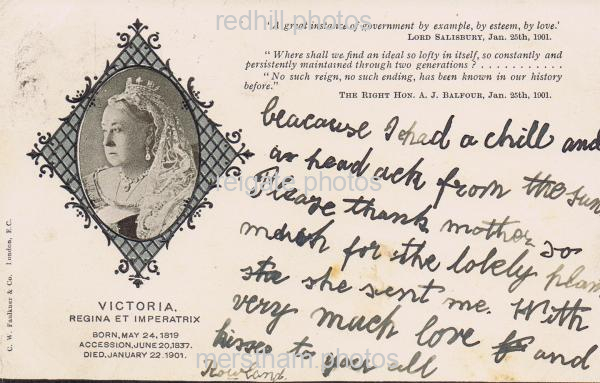 redhill photos
'A great instance of government by example, by esteem, by love.'
LORD SALISBURY, Jan. 25th, 1901.
"Where shall we find an ideal so lofty in itself, so constantly and
persistently maintained through two generations? . . . . . . . . . . .
"No such reign, no such ending, has been known in our history
before."
THE RIGHT HON. A. J. BALFOUR, Jan. 25th, 1901.
beacause I had a chill and
ar head ack from the sun
Please thank mother so
much for the lovely
she she sent me. With
very much love and
kisses to you all
Rowland.
reigate photos
C. W. Faulkner & Co. London, E.C.
VICTORIA,
REGINA ET IMPERATRIX
BORN, MAY 24, 1819
ACCESSION, JUNE 20, 1837.
DIED, JANUARY 22. 1901.
merstham.photos